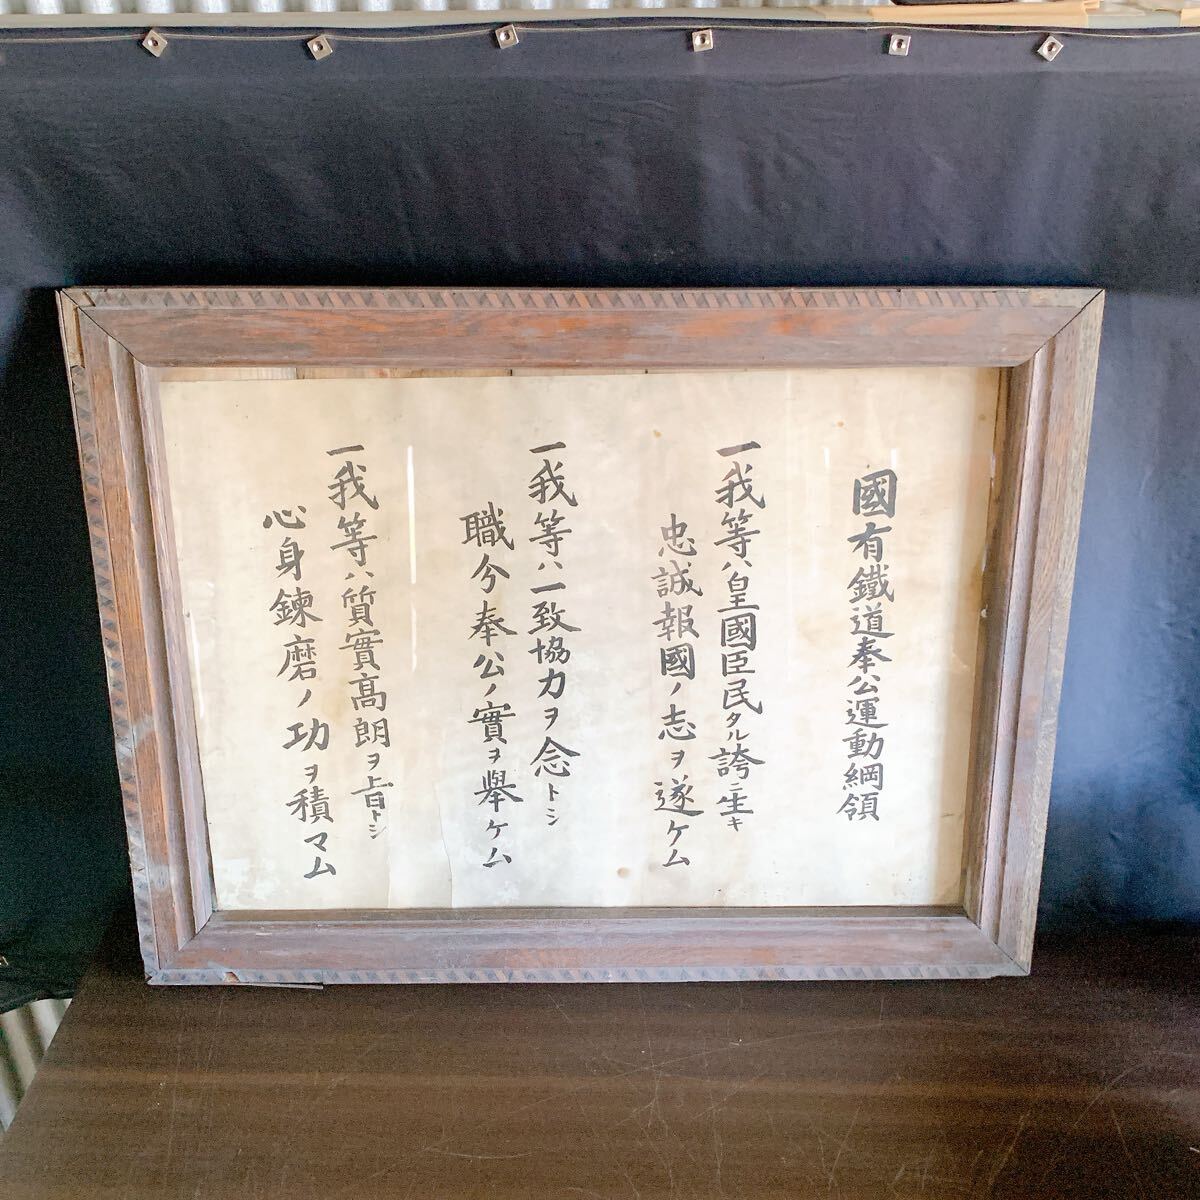 國有鐵道奉公運動綱領
一我等ハ皇國臣民タル誇ニ生キ
忠誠報國ノ志ヲ遂ケム
一我等ハ一致協力ヲ念トシ
職分奉公ノ實ヲ擧ケム
一我等ハ質實高朗ヲ旨トシ
心身鍊磨ノ功ヲ積マム